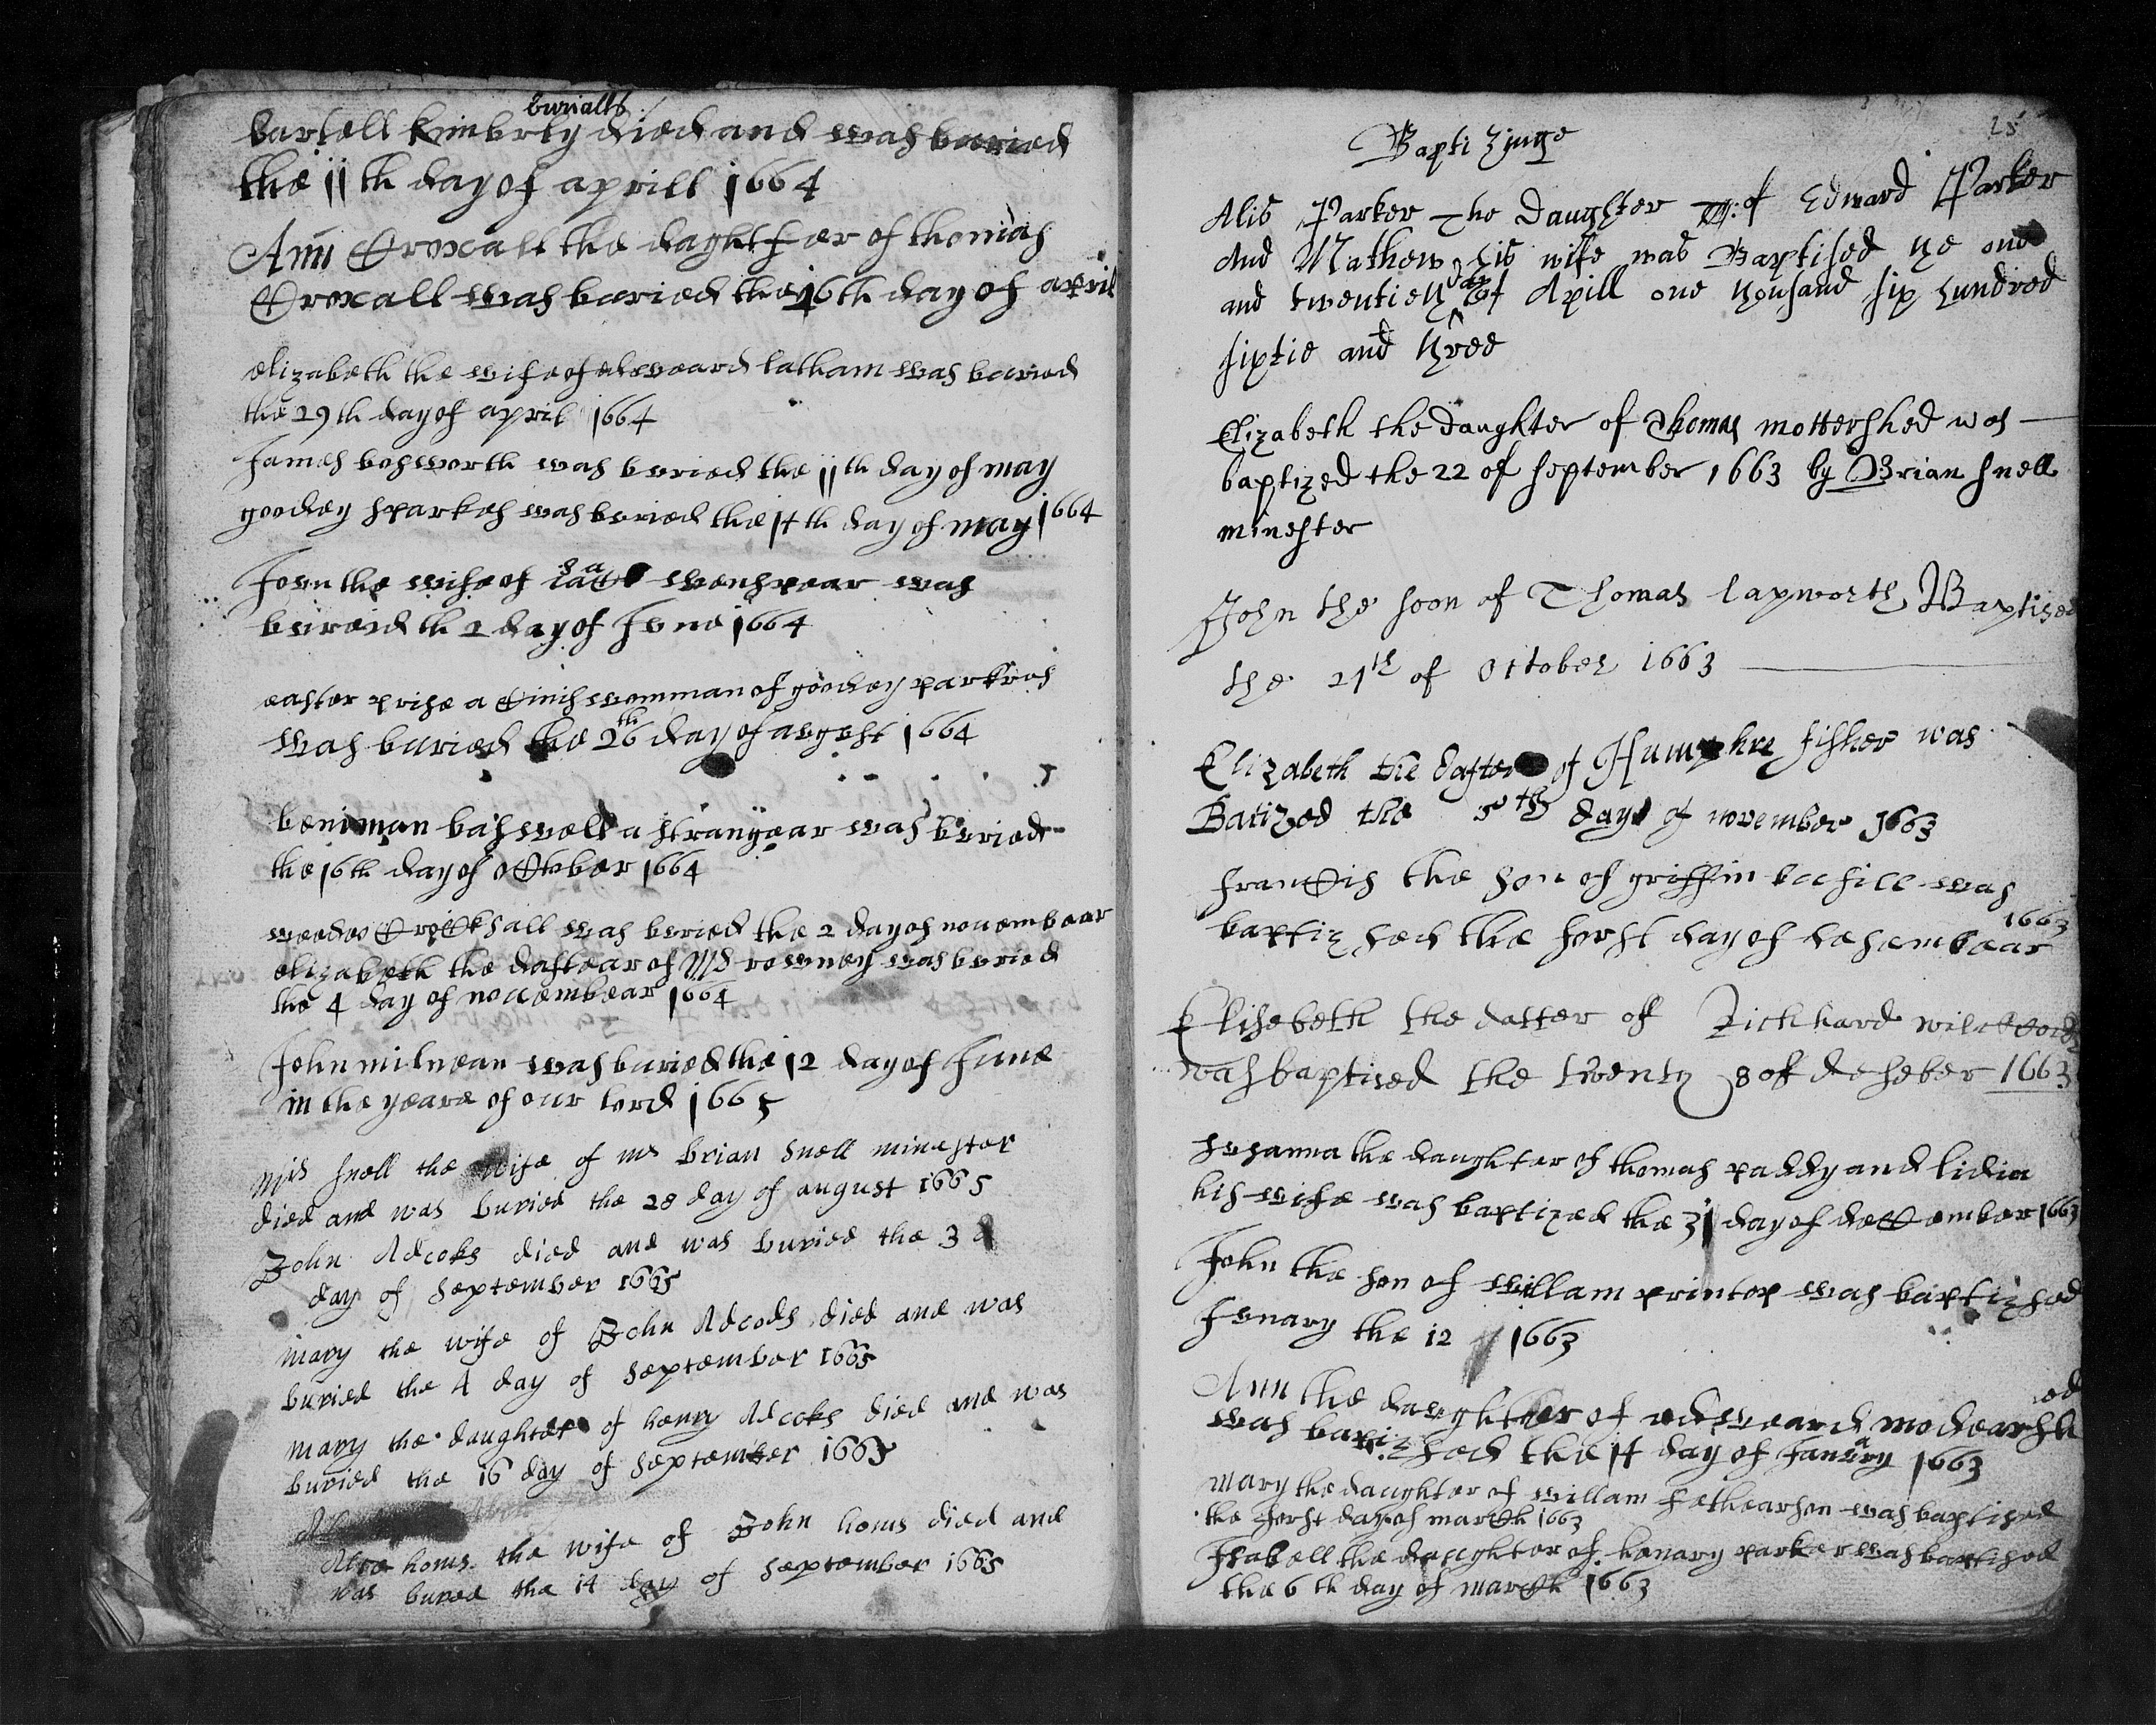 burialls
bartell kimberly died and was buried
the 11th day of aprill 1664
Ann Croxall the daghtfer of thomas
Croxall was buried the 16th day of april
elizabeth the wife of edweard latham was buried
the 29th day of april 1664
James bosworth was buried the 11th day of may
goodey sparkes was buried the 14th day of may 1664
Jovn the wife of wenspear was
bvreid th 2 day of Jvne 1664
easter prise a Cinswomman of goodey parkros
was buried the 26th day of avgvst 1664
beniman baswell a stranyear was bvried
the 16th day of October 1664
weedoo Cricksall was bvried the 2 day of nouembear
elizabeth the dafteear of Ms rowney was bvried
the 4 day of nouembear 1664
John milnean was buried the 12 day of June
in the yeare of our lord 1665
Mis snell the wife of mr brian snell minester
died and was buried the 28 day of august 1665
John Adcoks died and was buried the 3 d
day of september 1665
mary the wife of John Adcocks died and was
buried the 4 day of september 1665
mary the daughter of henry Adcoks died and was
buried the 16 day of september 1665
Alce homs the wife of John homs died and
was buried the 14 day of september 1665
25
Baptizinge
Alis Parker The Daughter of Edward Parker
And Mathew his wife was Baptised ye one
and twentieth day of Apill one thousand six hundred
sixtie and three
Elizabeth the daughter of Thomas mottershed was
baptized the 22 of september 1663 by Brian snell
minester
John the soon of Thomas lapworth Baptised
the 21th of October 1663
Elizabeth the dafter of Humphre fisher was
Batized the 5th day of november 1663
francis the son of griffin bufill was
baptiz sed the forst day of desembear 1663
Elisebeth the datter of Richhard
was baptised the twenty 8 of deseber 1663
Svsanna the daughter of thomas paddy and lidia
his wife was baptized the 31 day of december 1663
John the son of willam printop was baptizsed
Jvnary the 12 1663
Ann the davghtter of edweard modearshed
was bapizsed the 14 day of Janvary 1663
Mary the daughter of willam fethearson was baptised
the forst day of march 1663
Isabell the daughter of henary parker was baptised
the 6th day of march 1663